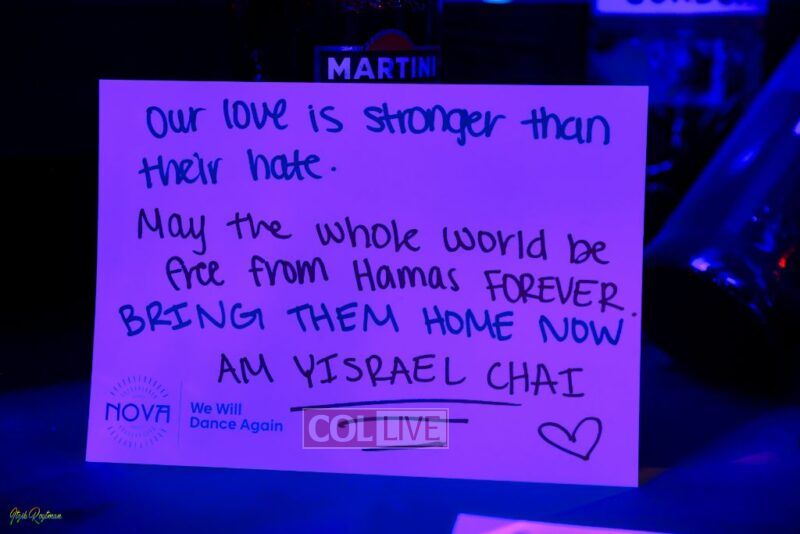 MARTINI
Our love is stronger than
their hate.
May the whole world be
free from Hamas FOREVER.
BRING THEM HOME NOW
AM YISRAEL CHAI
NOVA
We Will
Dance Again
COL LIVE